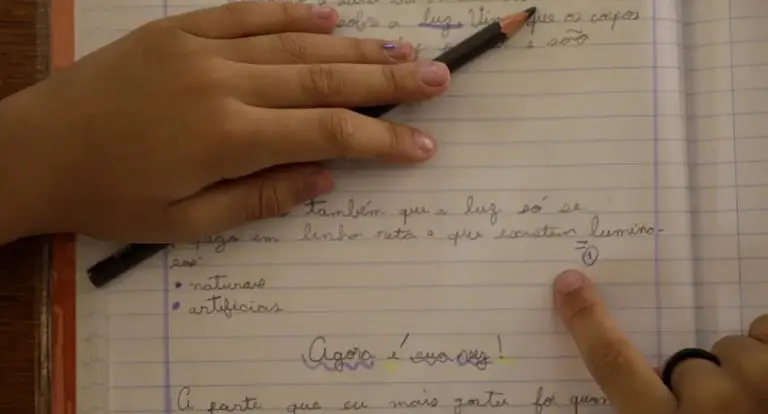 sobre a luz. Vimos que os corpos
e são
também que a luz só se
paga em linha reta e que existem lumino-
sos:
• naturais
• artificias
= 1
Agora é sua vez!
A parte que eu mais gostei foi quan